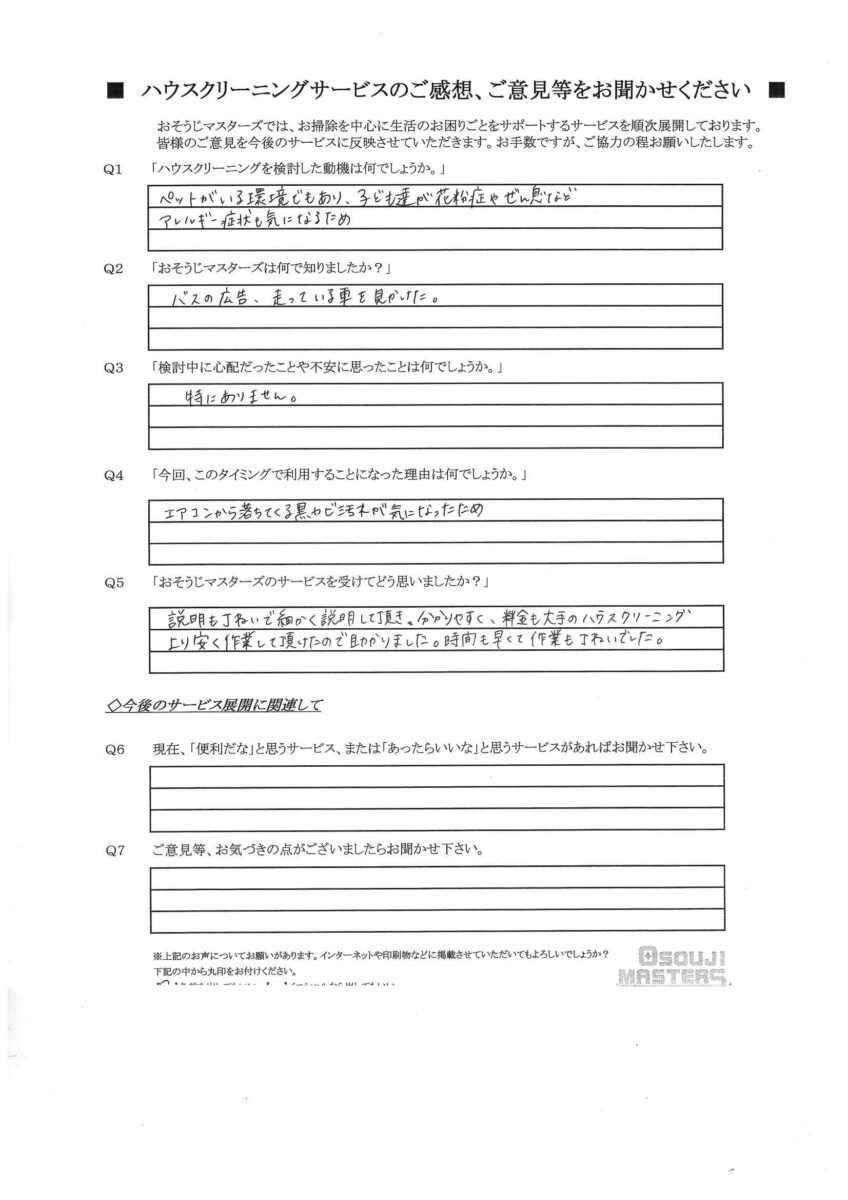 ■ ハウスクリーニングサービスのご感想、ご意見等をお聞かせください ■
おそうじマスターズでは、お掃除を中心に生活のお困りごとをサポートするサービスを順次展開しております。
皆様のご意見を今後のサービスに反映させていただきます。お手数ですが、ご協力の程お願いしたします。
Q1 「ハウスクリーニングを検討した動機は何でしょうか。」
ペットがいる環境でもあり、子ども達が花粉症やぜん息など
アレルギー症状も気になるため
Q2 「おそうじマスターズは何で知りましたか？」
バスの広告、走っている車を見かけた。
Q3 「検討中に心配だったことや不安に思ったことは何でしょうか。」
特にありません。
Q4 「今回、このタイミングで利用することになった理由は何でしょうか。」
エアコンから落ちてくる黒カビ汚れが気になったため
Q5 「おそうじマスターズのサービスを受けてどう思いましたか？」
説明も丁ねいで細かく説明して頂き。分かりやすく、料金も大手のハウスクリーニング
より安く作業して頂けたので助かりました。時間も早くて作業も丁ねいでした。
◇今後のサービス展開に関連して
Q6 現在、「便利だな」と思うサービス、または「あったらいいな」と思うサービスがあればお聞かせ下さい。
Q7 ご意見等、お気づきの点がございましたらお聞かせ下さい。
※上記のお声についてお願いがあります。インターネットや印刷物などに掲載させていただいてもよろしいでしょうか？
下記の中から丸印をお付けください。
OSOUJI
MASTERS